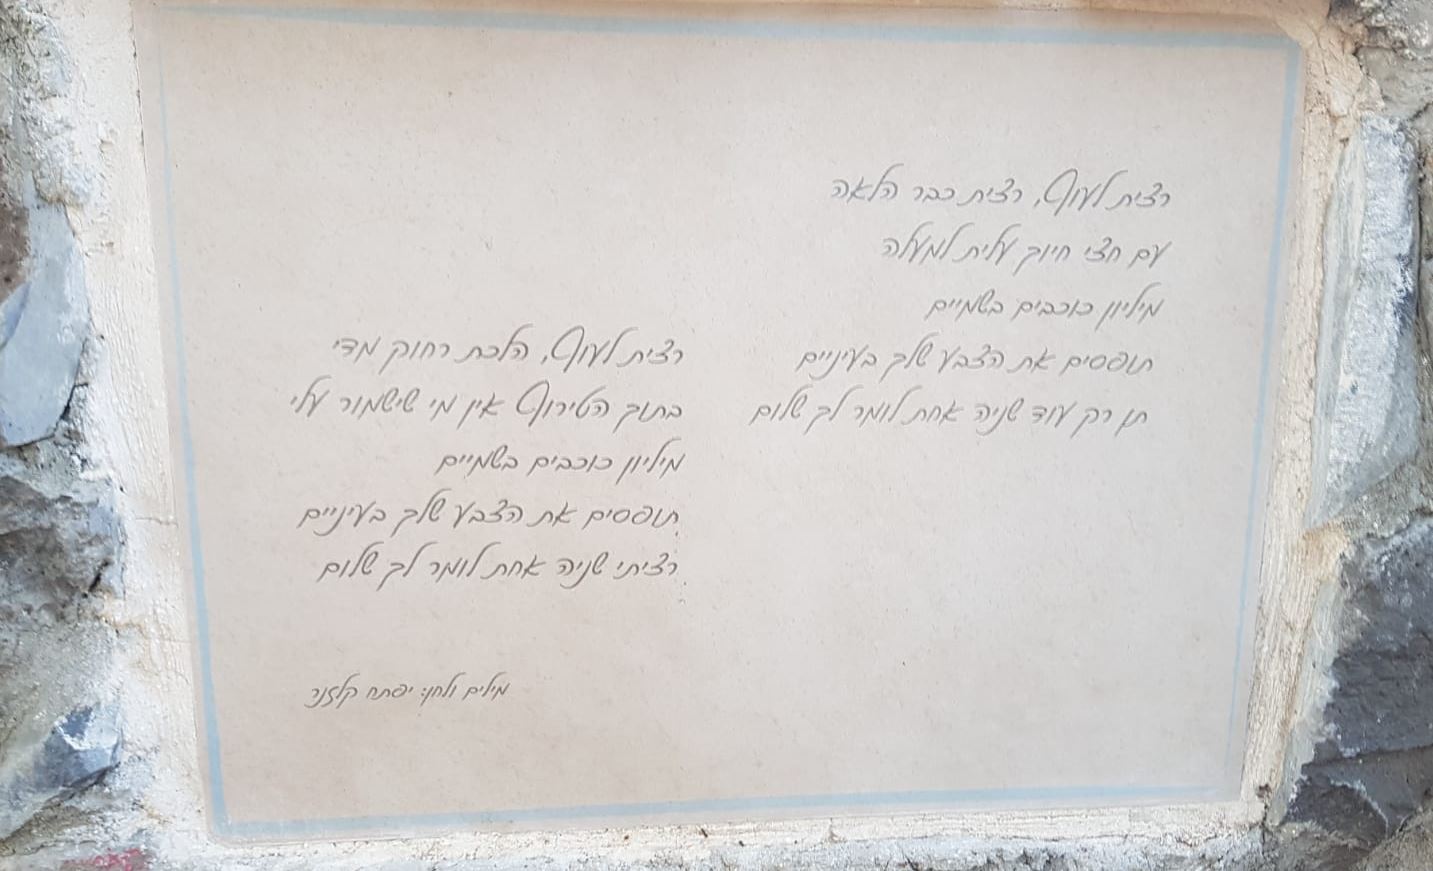 רצית לעוף, רצית כבר הלאה
עם חצי חיוך עלית למעלה
מיליון כוכבים בשמיים
תופסים את הצבע שלך בעיניים
תן רק עוד שניה אחת לומר לך שלום
רצית לעוף, הלכת רחוק מדי
בתוך הטירוף אין מי שישמור עלי
מיליון כוכבים בשמיים
תופסים את הצבע שלך בעיניים
רציתי שניה אחת לומר לך שלום
מילים ולחן: יפתח קלזנר